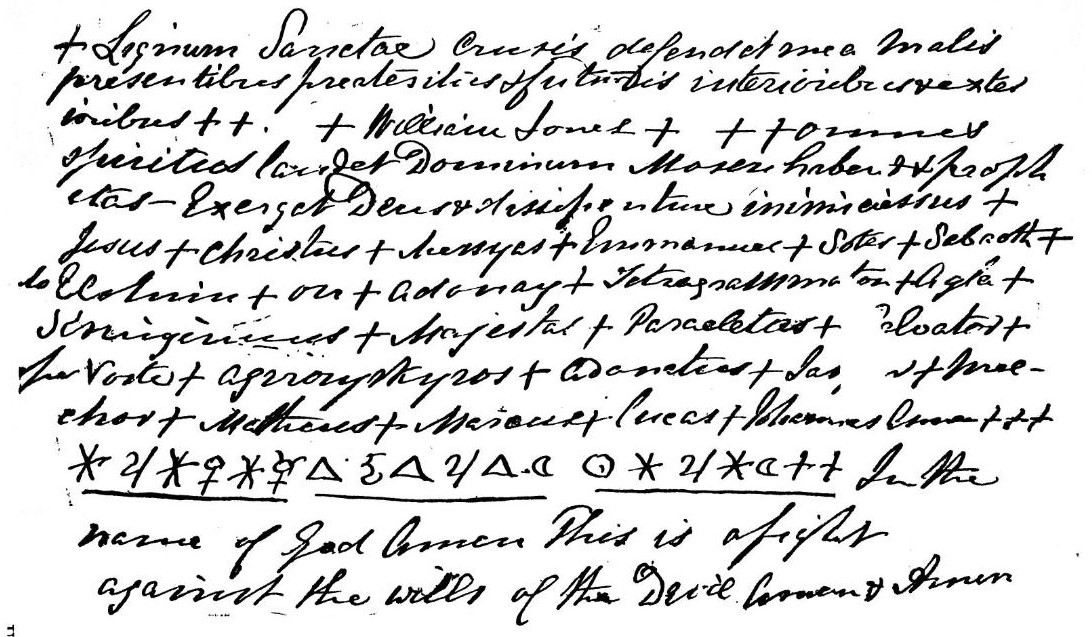 + Lignum Sanctae Crusis defendat me a malis
presentibus preateritus & futuris interioribus & exter
ioribus ++. + William Jones + ++ omnes
spiritus laudet Dominum Mosen habent & proph
etas - Exergat Deus & dissipenture inimiciessus +
Jesus + Christus + Messyas + Emmanuel + Soter + Sabaoth +
Elohim + on + Adonay + Tetragrammaton + Agla +
+ Majestas + Paracletus +
+ agirosyskyros + Adonetus +
chor + Matheus + Marcus + Lucas + Johannes Amen +++
✶ ♃ ✶ ♀ ✶ ☿ △ △ ♃ △ ☾ ☉ ✶ ♃ ✶ ☾ ++ In the
name of God Amen This is a fight
against the wills of the Devil Amen & Amen